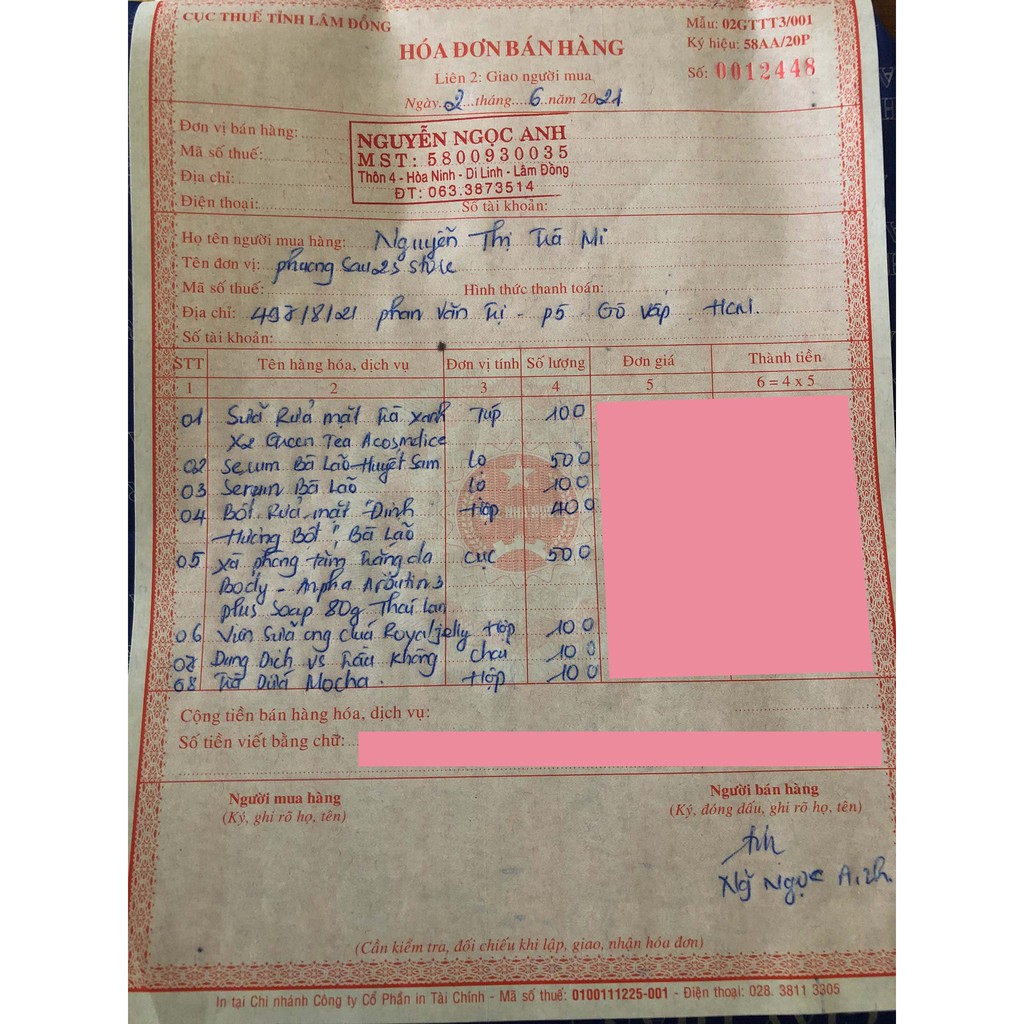 CỤC THUẾ TỈNH LÂM ĐỒNG
Mẫu: 02GTTT3/001
HÓA ĐƠN BÁN HÀNG
Ký hiệu: 58AA/20P
Liên 2: Giao người mua
Số: 0012448
Ngày 2 tháng 6 năm 2021
Đơn vị bán hàng:
NGUYỄN NGỌC ANH
Mã số thuế:
MST: 5800930035
Địa chỉ:
Thôn 4 - Hòa Ninh - Di Linh - Lâm Đồng
ĐT: 063.3873514
Điện thoại: Số tài khoản:
Họ tên người mua hàng: Nguyễn Thị Trà Mi
Tên đơn vị: phuong Sau25 Store
Mã số thuế: Hình thức thanh toán:
Địa chỉ: 497/8/21 phan Văn Trị - p5 - Gò Vấp. HCM.
Số tài khoản:
STT Tên hàng hóa, dịch vụ Đơn vị tính Số lượng Đơn giá Thành tiền
1 2 3 4 5 6 = 4 x 5
01 Sữa Rửa mặt Trà xanh Túp 100
Green Tea Acosmetice
02 Serum Bà Lão Huyết Sâm Lọ 500
03 Serum Bà Lão Lọ 100
04 Bột Rửa mặt "Đinh Hộp 400
Hương Bột", Bà Lão
05 Xà phòng tắm trắng da cục 500
Body - Anpha Arbutin 3
plus Soap 80g Thai Lan
06 Viên Sữa ong chúa Royal jelly Hộp 100
07 Dung Dịch vs Trầu Không chai 100
08 Trà Dừa Mocha. Hộp 100
Cộng tiền bán hàng hóa, dịch vụ:
Số tiền viết bằng chữ:
Người mua hàng Người bán hàng
(Ký, ghi rõ họ, tên) (Ký, đóng dấu, ghi rõ họ, tên)
Ngọc Anh
(Cần kiểm tra, đối chiếu khi lập, giao, nhận hóa đơn)
In tại Chi nhánh Công ty Cổ Phần in Tài Chính - Mã số thuế: 0100111225-001 - Điện thoại: 028. 3811 3305